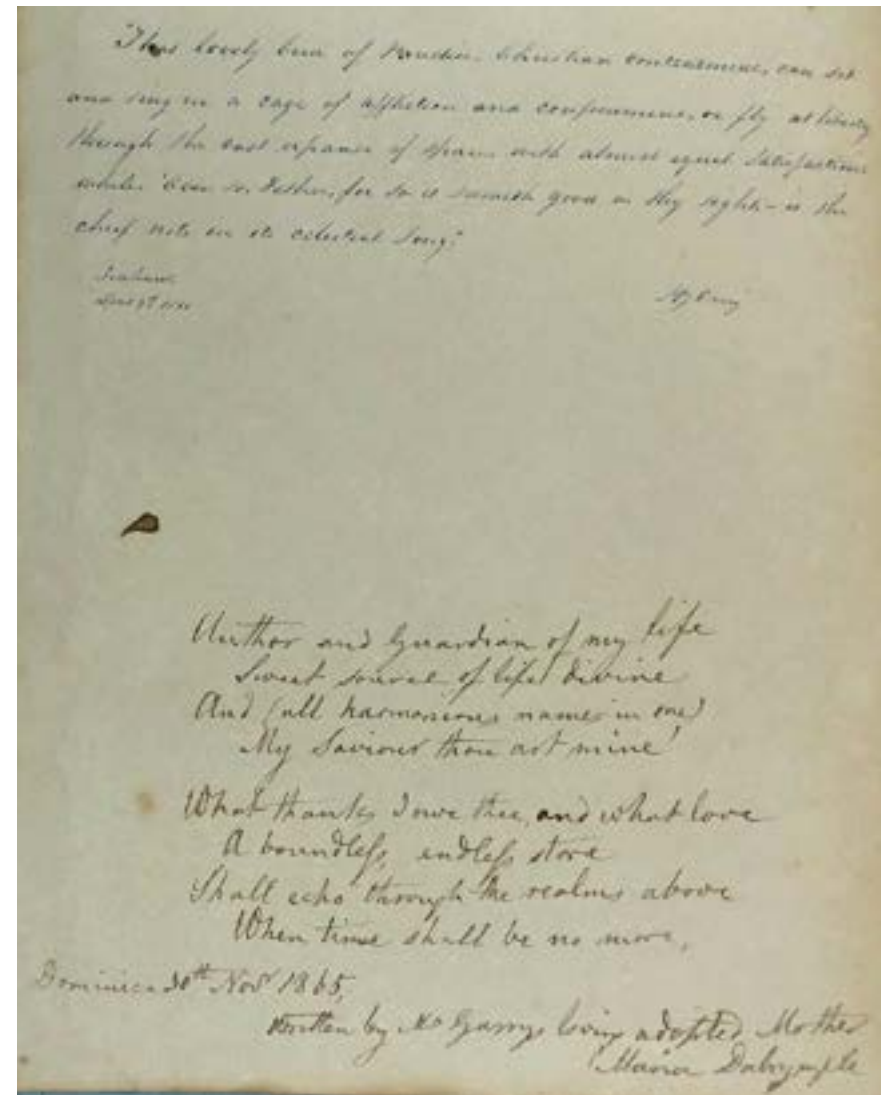 This lovely bird of Paradise, Christian contentment, can sit
and sing in a cage of affliction and confinement, or fly at liberty
through the vast expanse of space with almost equal satisfaction;
while 'Even so, Father, for so it seemeth good in thy sight' - is the
chief note in its celestial song."
Author and Guardian of my life
Sweet source of life divine
And (all harmonious names in one)
My Saviour thou art mine!
What thanks I owe thee, and what love
A boundless, endless store
Shall echo through the realms above
When time shall be no more.
Dominica 30th Nov 1865,
written by Mr Garrys loving adopted Mother
Maria Dalrymple